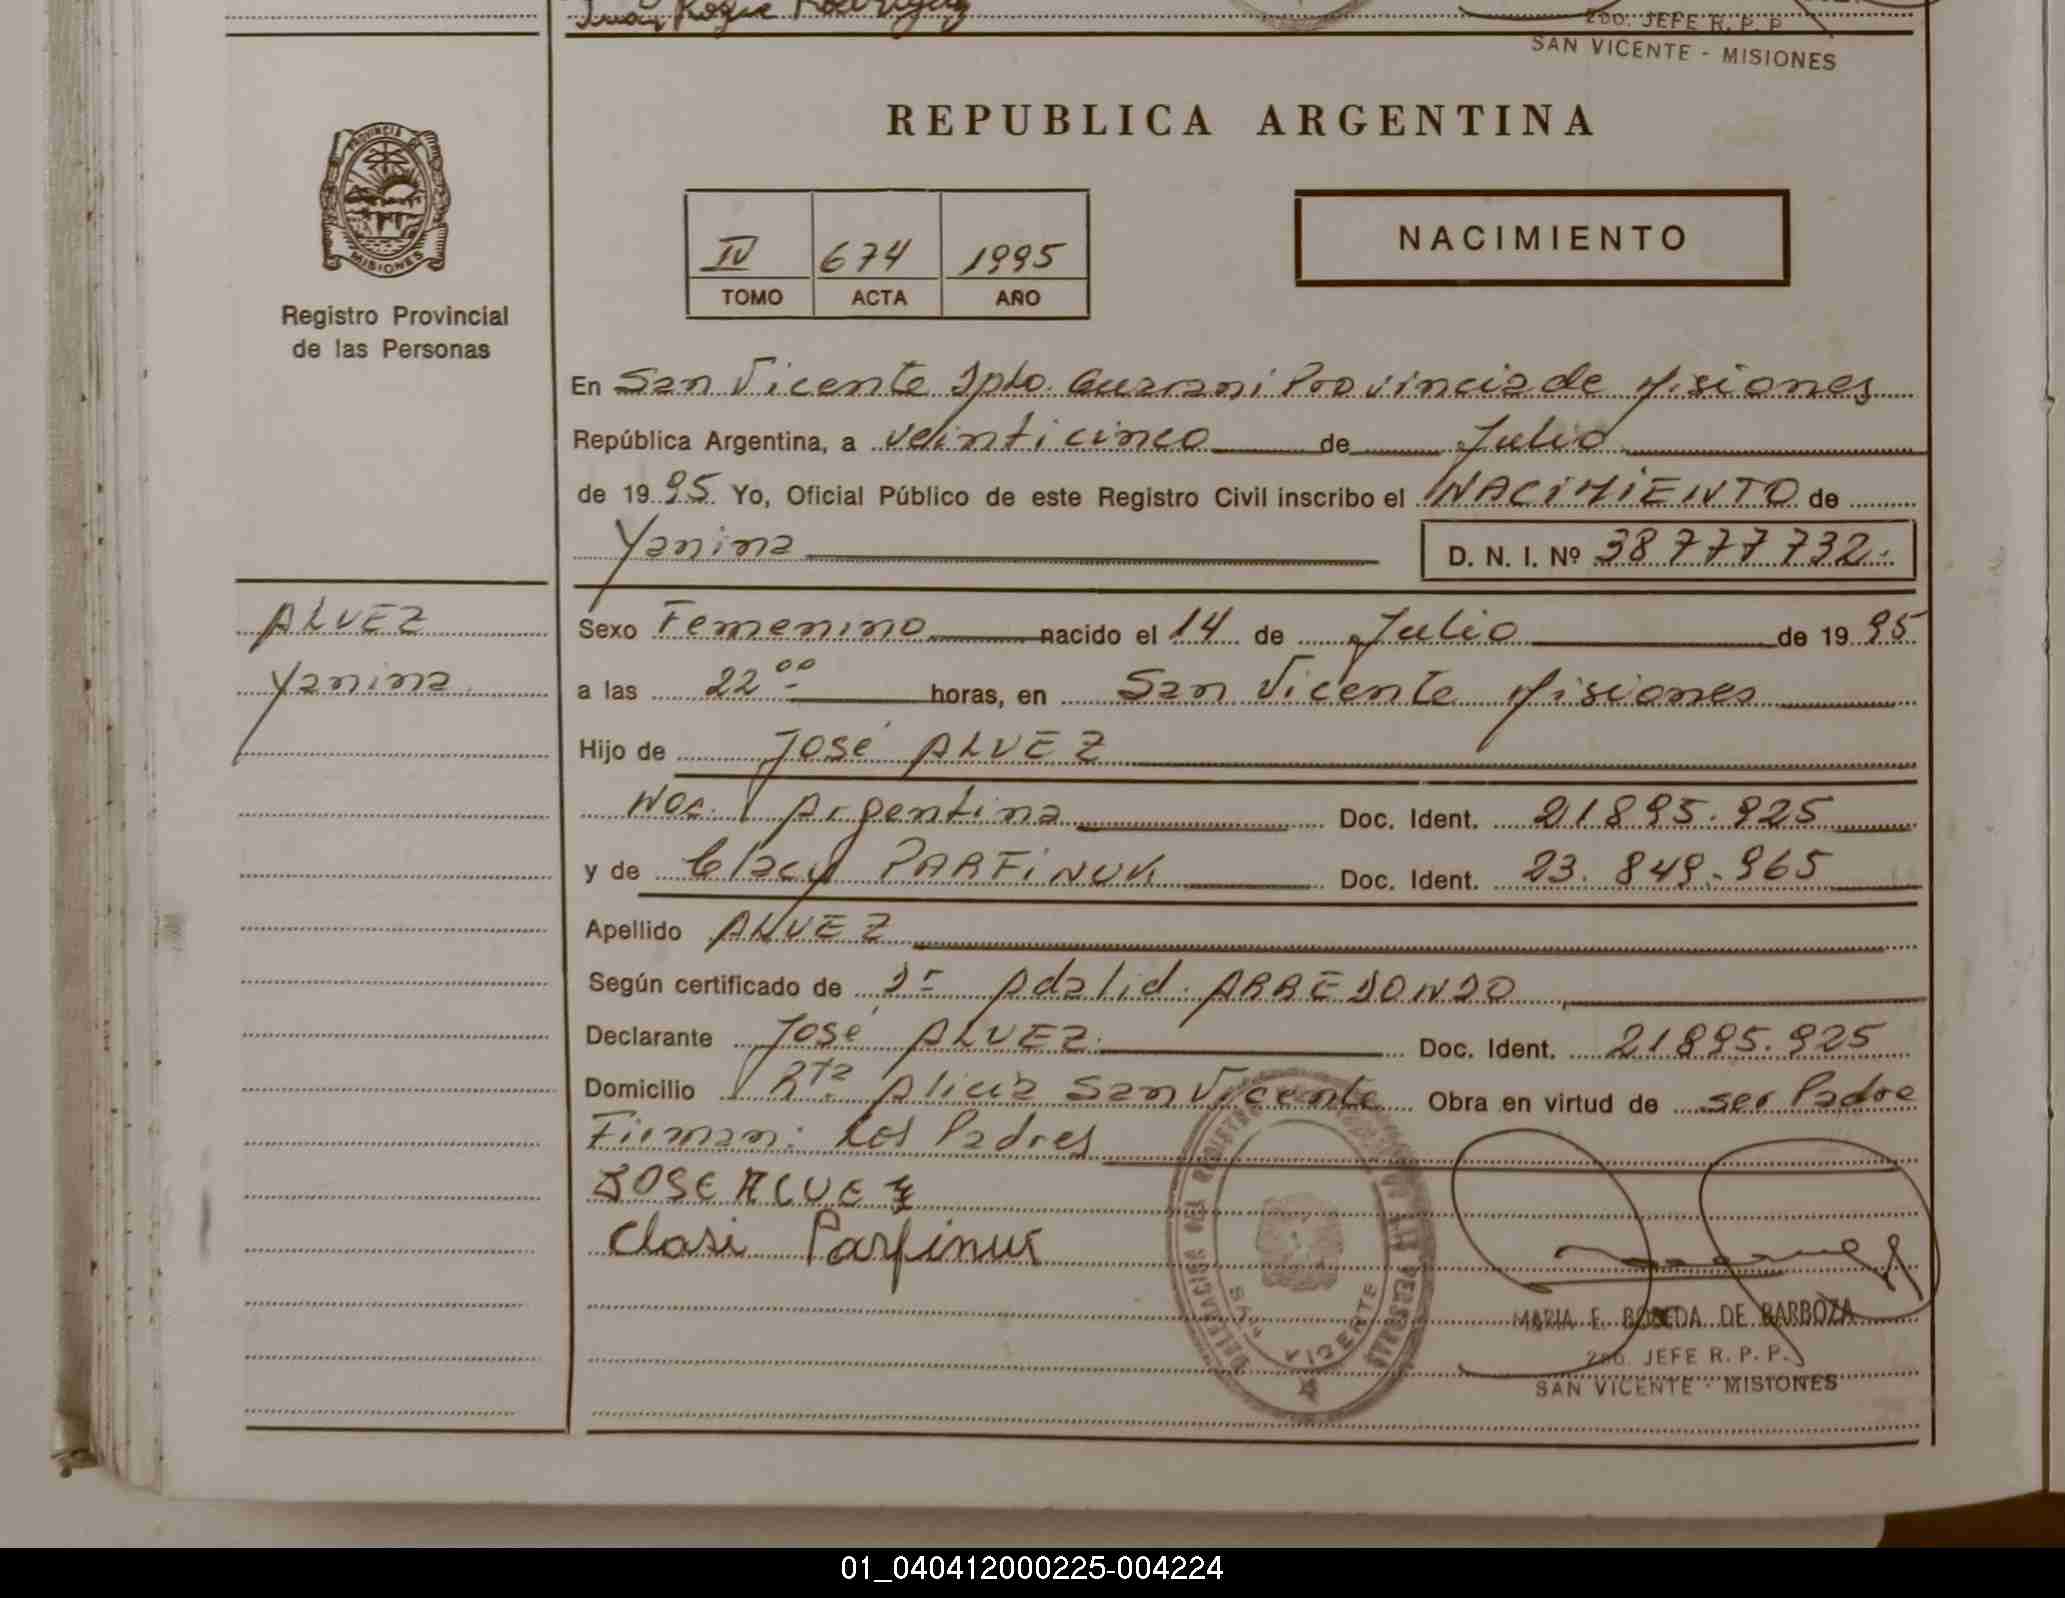 Juan Roque Rodriguez
2do. JEFE R. P. P.
SAN VICENTE - MISIONES
PROVINCIA DE
MISIONES
Registro Provincial
de las Personas
REPUBLICA ARGENTINA
IV 674 1995
TOMO ACTA AÑO
NACIMIENTO
En San Vicente Dpto. Guarani Provincia de Misiones
República Argentina, a veinticinco de Julio
de 1995 Yo, Oficial Público de este Registro Civil inscribo el NACIMIENTO de
Yanina D. N. I. Nº 38 777 732.-
ALVEZ
Yanina
Sexo Femenino nacido el 14 de Julio de 1995
a las 22 00 horas, en San Vicente Misiones
Hijo de José ALVEZ
Nac. Argentina Doc. Ident. 21895.925
y de Clacy PARFINUK Doc. Ident. 23.849.965
Apellido ALVEZ
Según certificado de Dr Adalid ARREDONDO
Declarante José ALVEZ Doc. Ident. 21895.925
Domicilio Rta Alicia San Vicente Obra en virtud de ser Padre
Firman: Los Padres
JOSE ALVEZ
Clasi Parfinuk
DELEGACION DEL REGISTRO DE LAS PERSONAS
SAN VICENTE
MARIA E. BOBEDA DE BARBOZA
2do. JEFE R. P. P.
SAN VICENTE - MISIONES
01_040412000225-004224